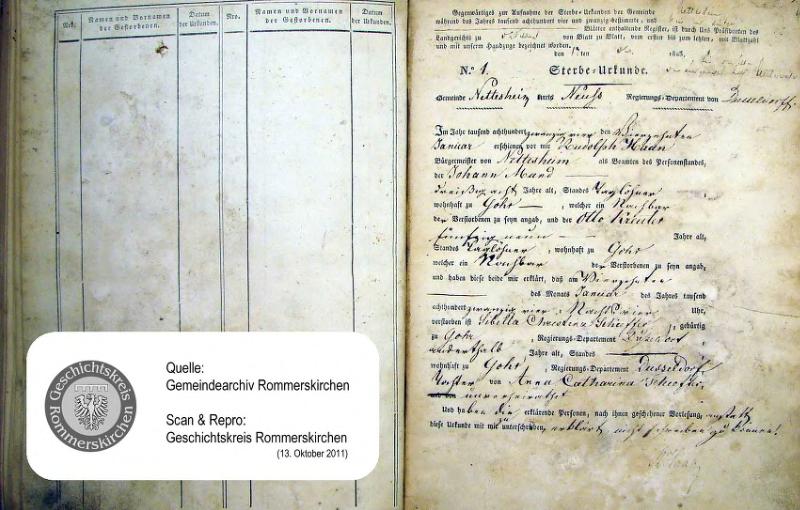 Nro.
Namen und Vornamen
der Gestorbenen.
Datum
der Urkunden.
Nro.
Namen und Vornamen
der Gestorbenen.
Datum
der Urkunden.
Quelle:
Gemeindearchiv Rommerskirchen
Scan & Repro:
Geschichtskreis Rommerskirchen
(13. Oktober 2011)
Geschichtskreis
Rommerskirchen
Gegenwärtiges zur Aufnahme der Sterbe-Urkunden der Gemeinde
während des Jahres tausend achthundert vier und zwanzig bestimmte, und
Blätter enthaltende Register, ist durch Uns Präsidenten des
Landgerichts zu von Blatt zu Blatt, vom ersten bis zum letzten, mit Blattzahl
und mit unserm Handzuge bezeichnet worden.
den ten 1823.
N.° 1. Sterbe-Urkunde.
Gemeinde Nettesheim Kreis Neuss Regierungs-Departement von Dusseldorff
Im Jahre tausend achthundert zwanzig vier den Vierzehnten
Januar erschienen vor mir Rudolph Haan
Bürgermeister von Nettesheim als Beamten des Personenstandes,
der Johann Mand
dreißig acht Jahre alt, Standes Taglöhner
wohnhaft zu Gohr, welcher ein Nachbar
der Verstorbenen zu seyn angab, und der Otto
fünfzig neun Jahre alt,
Standes Taglöhner, wohnhaft zu Gohr
welcher ein Nachbar der Verstorbenen zu seyn angab,
und haben diese beide mir erklärt, daß am Vierzehnten
des Monats Januar des Jahres tausend
achthundert zwanzig vier, Nachts vier Uhr,
verstorben ist Sibella Christina, gebürtig
zu Gohr, Regierungs-Departement Düsseldorf
anderthalb Jahre alt, Standes
wohnhaft zu Gohr, Regierungs-Departement Dusseldorf
Tochter von Anna Catharina
unverheirathet
Und haben die erklärende Personen, nach ihnen geschehener Vorlesung, anstatt
diese Urkunde mit mir zu unterschreiben, erklärt nicht schreiben zu können!